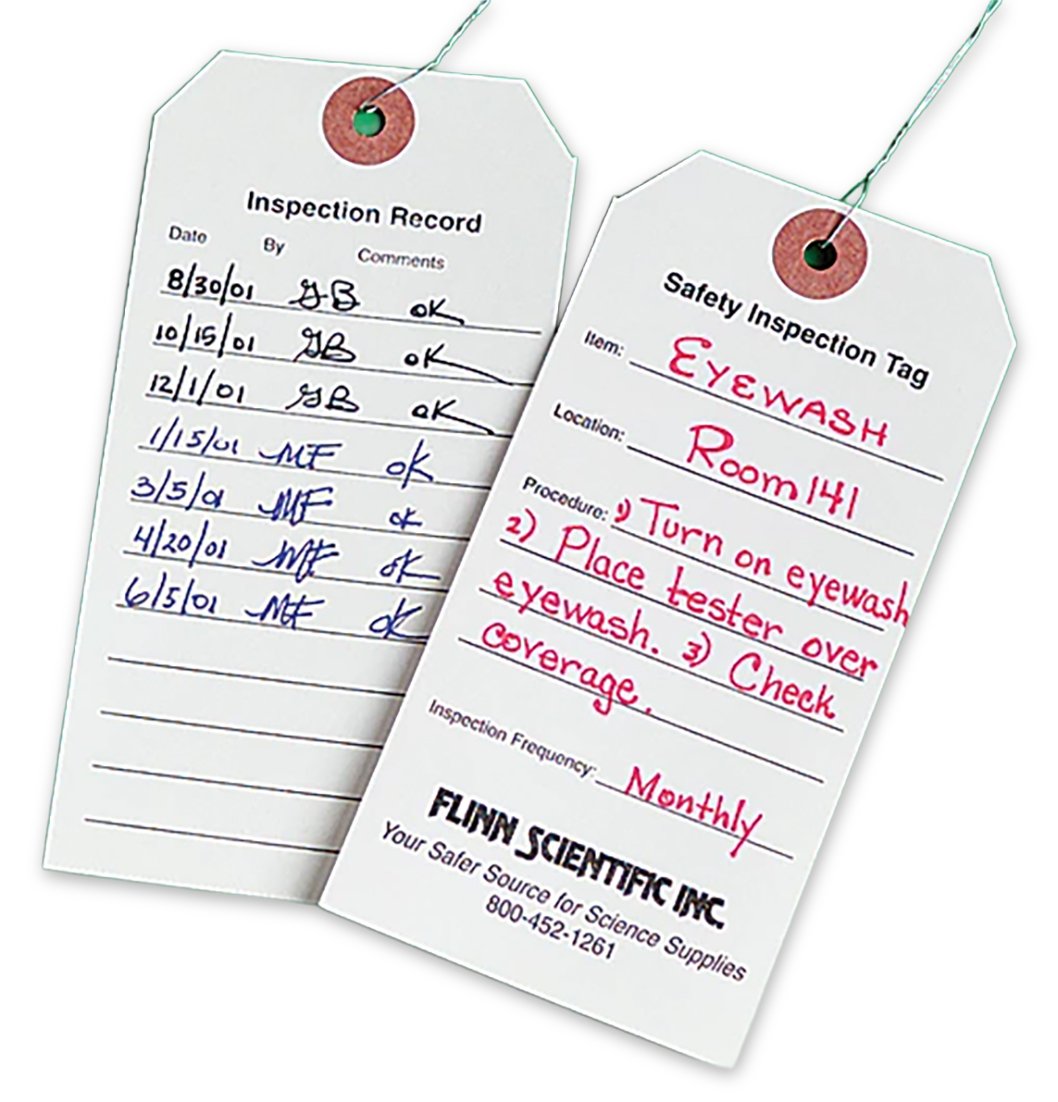 Inspection Record
Date By Comments
8/30/01 GB OK
10/15/01 GB OK
12/1/01 GB OK
1/15/01 MF OK
3/5/01 MF OK
4/20/01 MF OK
6/5/01 MF OK
Safety Inspection Tag
Item: EYEWASH
Location: Room 141
Procedure: 1) Turn on eyewash
2) Place tester over
eyewash. 3) Check
coverage.
Inspection Frequency: Monthly
FLINN SCIENTIFIC INC.
Your Safer Source for Science Supplies
800-452-1261